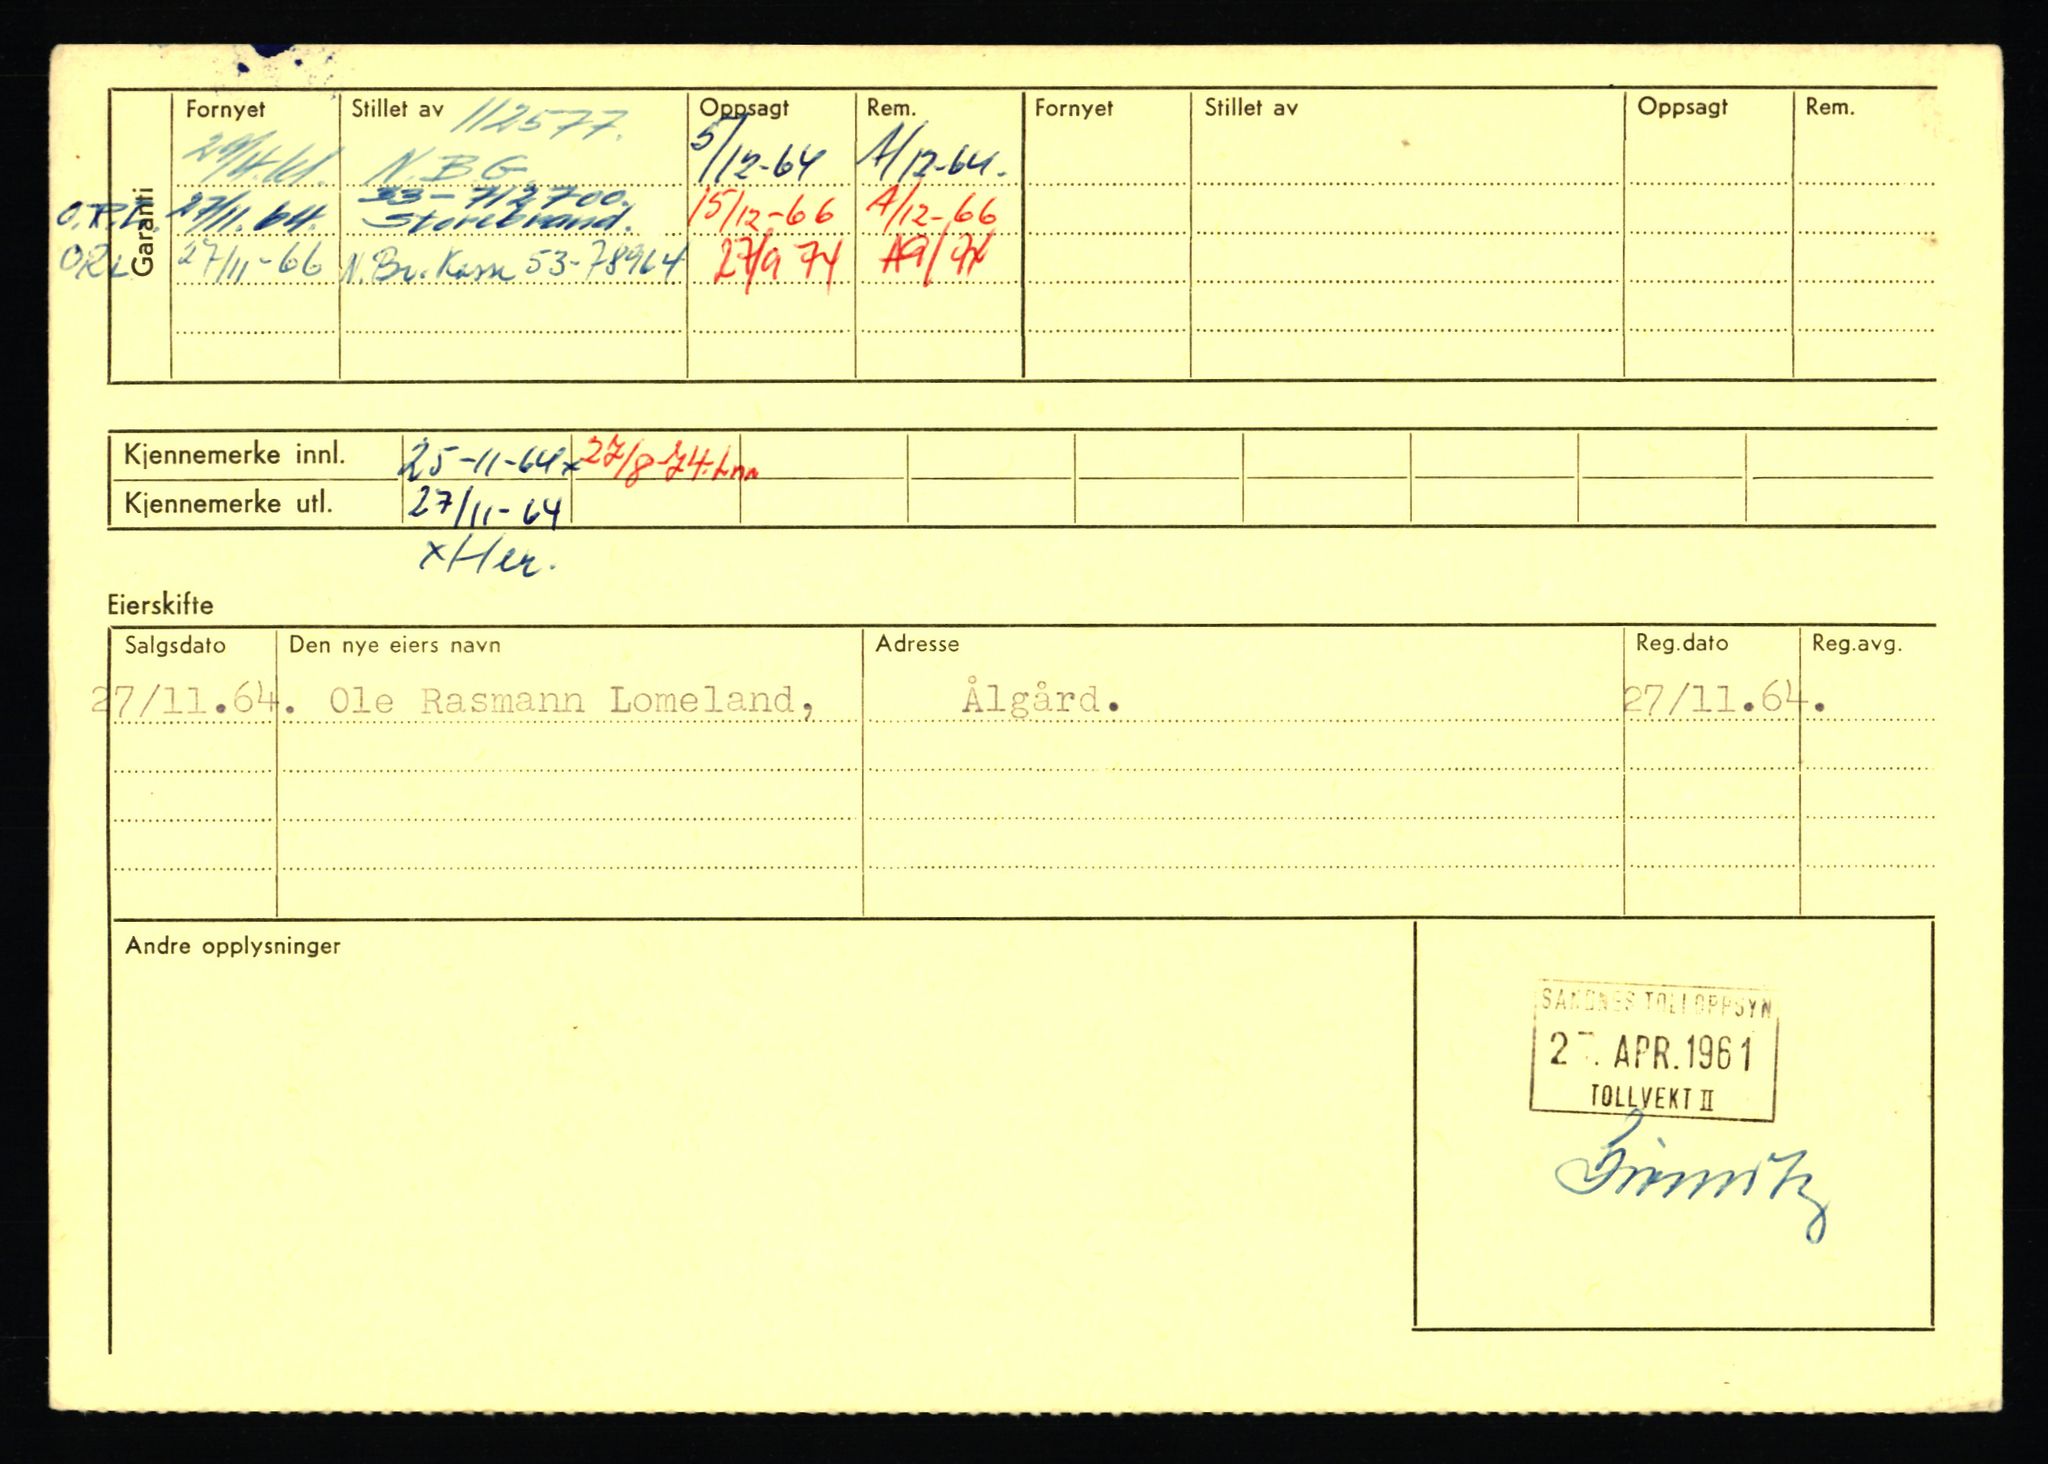 Garanti
Fornyet Stillet av 112577. Oppsagt Rem. Fornyet Stillet av Oppsagt Rem.
N.B.G. 5/12-64 A/12-64.
O.R.L. 27/11.64. 33-712700. Storebrand. 15/12-66 A/12-66
ORL 27/11-66 N.Br.Kasse 53-78964 27/9 74 A9/74
Kjennemerke innl. 25-11-64x 27/8-74
Kjennemerke utl. 27/11-64
xHer.
Eierskifte
Salgsdato Den nye eiers navn Adresse Reg.dato Reg.avg.
27/11.64. Ole Rasmann Lomeland, Ålgård. 27/11.64.
Andre opplysninger
SANDNES TOLLOPPSYN
2 . APR. 1961
TOLLVEKT II